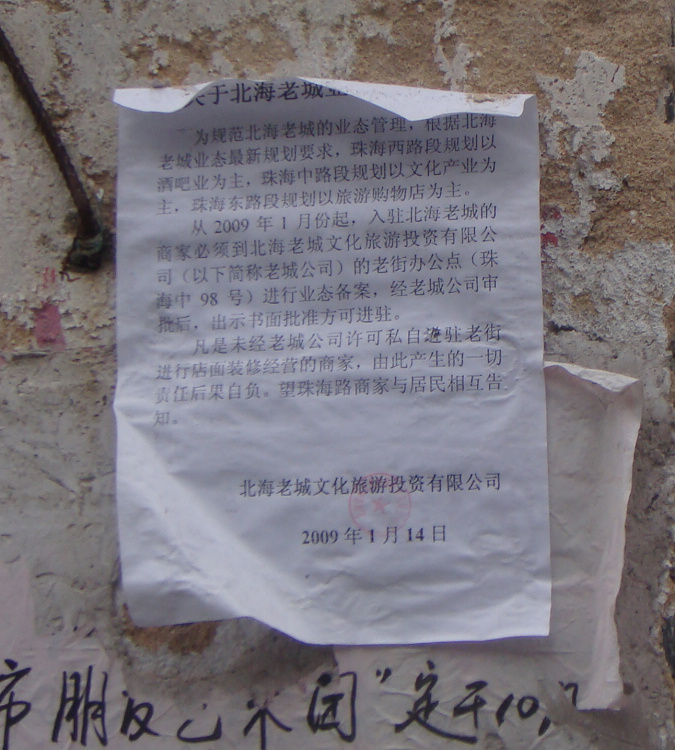 关于北海老城业
为规范北海老城的业态管理，根据北海
老城业态最新规划要求，珠海西路段规划以
酒吧业为主，珠海中路段规划以文化产业为
主，珠海东路段规划以旅游购物店为主。
从 2009 年 1 月份起，入驻北海老城的
商家必须到北海老城文化旅游投资有限公
司（以下简称老城公司）的老街办公点（珠
海中 98 号）进行业态备案，经老城公司审
批后，出示书面批准方可进驻。
凡是未经老城公司许可私自进驻老街
进行店面装修经营的商家，由此产生的一切
责任后果自负。望珠海路商家与居民相互告
知。
北海老城文化旅游投资有限公司
2009 年 1 月 14 日
市朋友艺术团"定于10,